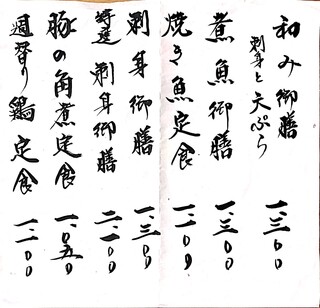 和み御膳 一、三〇〇
刺身と天ぷら
煮魚御膳 一、三〇〇
焼き魚定食 一、一〇〇
刺身御膳 一、三〇〇
特選 刺身御膳 二、一〇〇
豚の角煮定食 一、〇五〇
週替り鶏定食 一、一〇〇